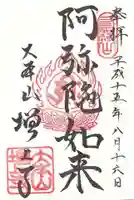 奉拝
平成十五年八月十六日
阿弥陀如来
大本山増上寺